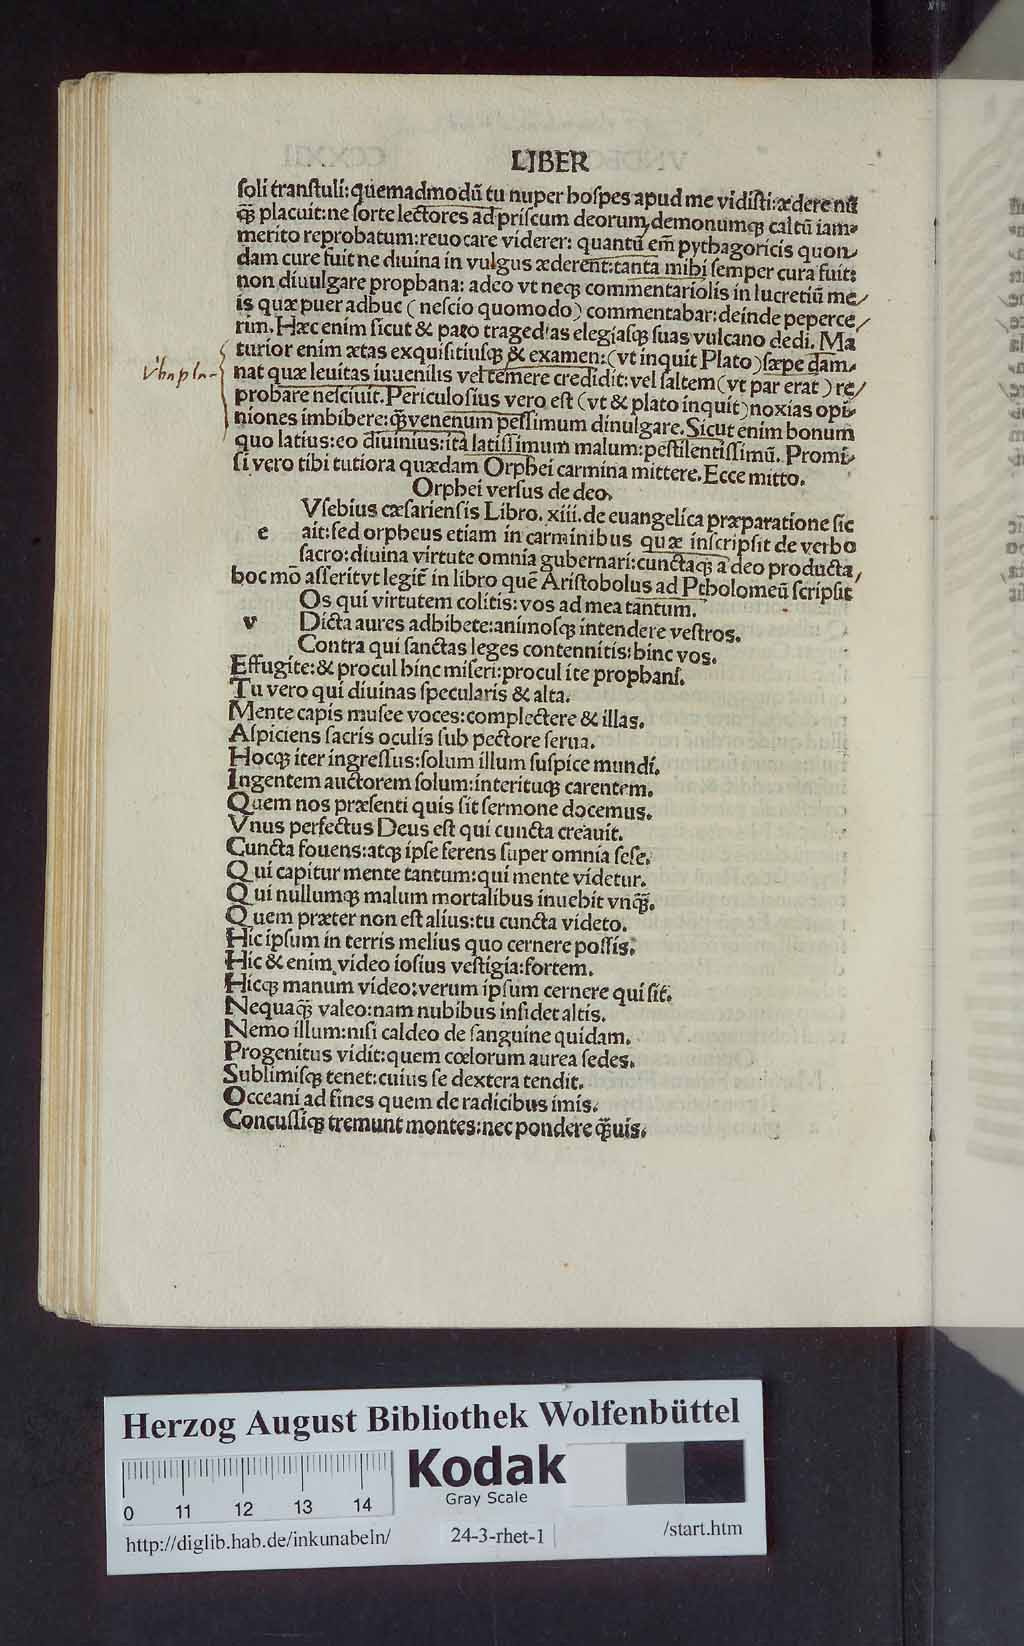 LIBER
soli transtuli:quemadmodū tu nuper hospes apud me vidisti:ædere nū
q̄ placuit:ne forte lectores ad priscum deorum demonumq; caltū iam
merito reprobatum:reuocare viderer: quantū em̄ pythagoricis quon
dam cure fuit ne diuina in vulgus æderent:tanta mihi semper cura fuit:
non diuulgare prophana: adeo vt neq; commentariolis in lucretiū me
is quæ puer adhuc (nescio quomodo) commentabar:deinde peperce
rim. Hæc enim sicut & pato tragedias elegiasq; suas vulcano dedi. Ma
turior enim ætas exquisitiusq; & examen:(vt inquit Plato)sæpe dam
nat quæ leuitas iuuenilis vel temere credidit:vel saltem(vt par erat) re
probare nesciuit. Periculosius vero est (vt & plato inquit)noxias opi
niones imbibere:q̄ venenum pessimum dinulgare. Sicut enim bonum
quo latius:eo diuinius:ita latissimum malum:pestilentissimū. Promi
si vero tibi tutiora quædam Orphei carmina mittere. Ecce mitto.
Orphei versus de deo.
Vsebius cæsariensis Libro. xiii. de euangelica præparatione sic
e ait:sed orpheus etiam in carminibus quæ inscripsit de verbo
sacro:diuina virtute omnia gubernari:cunctaq; a deo producta
hoc mō asserit vt legit̄ in libro quē Aristobolus ad Ptholomeū scripsit
Os qui virtutem colitis:vos ad mea tantum.
v Dicta aures adhibete:animosq; intendere vestros.
Contra qui sanctas leges contennitis:hinc vos.
Effugite:& procul hinc miseri:procul ite prophani.
Tu vero qui diuinas specularis & alta.
Mente capis musee voces:complectere & illas.
Aspiciens sacris oculis sub pectore serua.
Hocq; iter ingressus:solum illum suspice mundi.
Ingentem auctorem solum:interituq; carentem.
Quem nos præsenti quis sit sermone docemus.
Vnus perfectus Deus est qui cuncta creauit.
Cuncta fouens:atq; ipse ferens super omnia sese.
Qui capitur mente tantum:qui mente videtur.
Qui nullumq; malum mortalibus inuehit vnq̄.
Quem præter non est alius:tu cuncta videto.
Hic ipsum in terris melius quo cernere possis.
Hic & enim video iosius vestigia:fortem.
Hicq; manum video:verum ipsum cernere qui sit.
Nequaq̄ valeo:nam nubibus insidet altis.
Nemo illum:nisi caldeo de sanguine quidam.
Progenitus vidit:quem cœlorum aurea sedes.
Sublimisq; tenet:cuius se dextera tendit.
Occeani ad fines quem de radicibus imis.
Concussiq; tremunt montes:nec pondere q̄uis.
Herzog August Bibliothek Wolfenbüttel
Kodak
Gray Scale
0 11 12 13 14
http://diglib.hab.de/inkunabeln/ 24-3-rhet-1 /start.htm